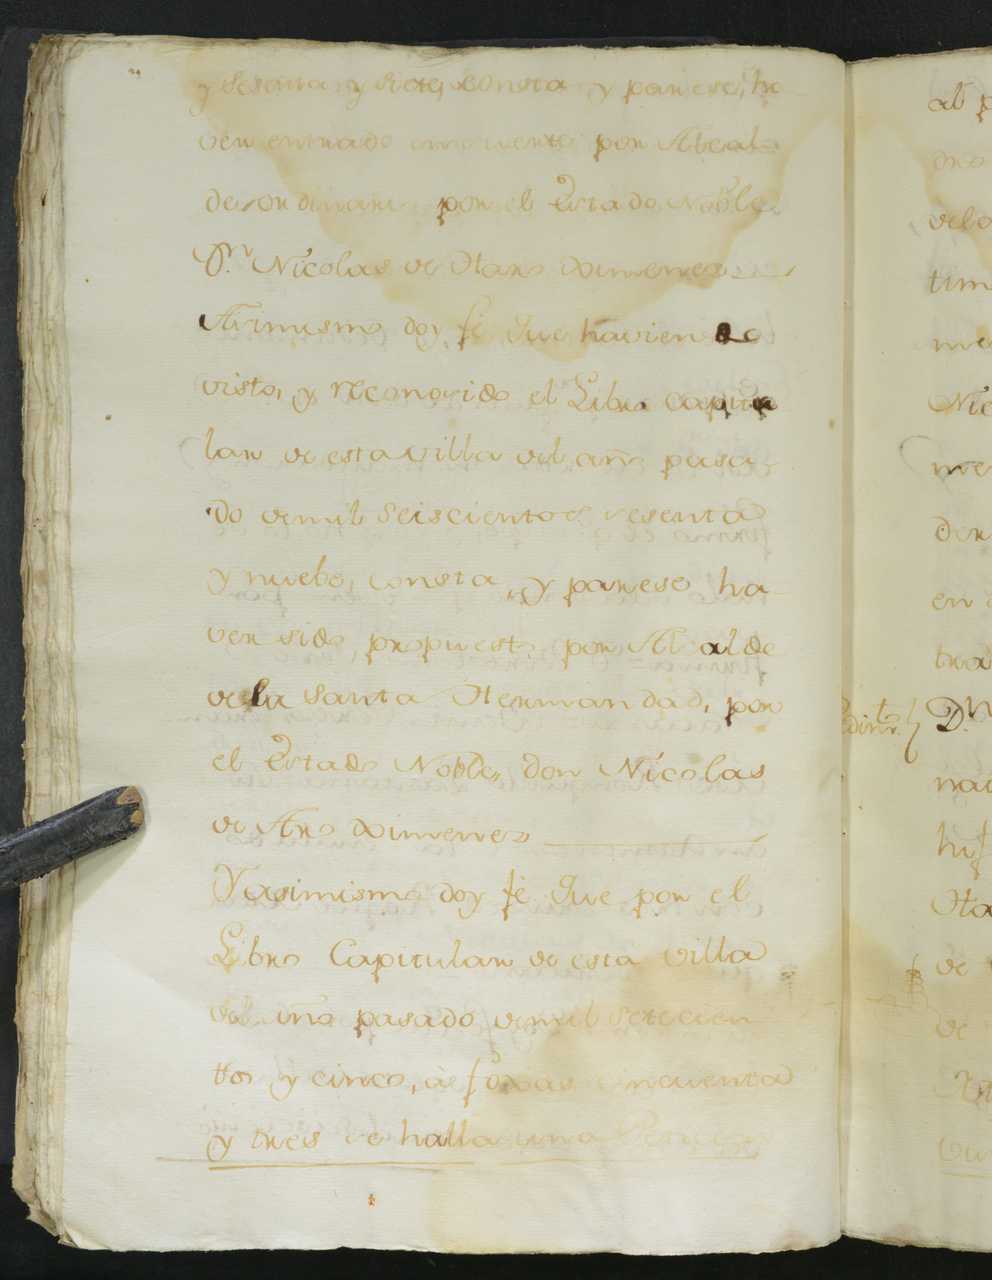 y sesenta y siete, consta, y parese, ha
ver entrado por Alcal
de ordinario por el Estado Noble
Dn. Nicolas de Haro Ximenes
Asimismo doy fé que haviendo
visto, y reconosido el Libro Capitu
lar de esta Villa del año pasa
do de mil seiscientos sesenta
y nuebe, consta, y parese ha
ver sido propuesto por Alcalde
de la Santa Hermandad, por
el Estado Noble, don Nicolas
de Aro Ximenes
Y asimismo doy fé que por el
Libro Capitular de esta Villa
del año pasado de mil setecien
tos y cinco, á foxas cincuenta
y tres se halla una Peticion